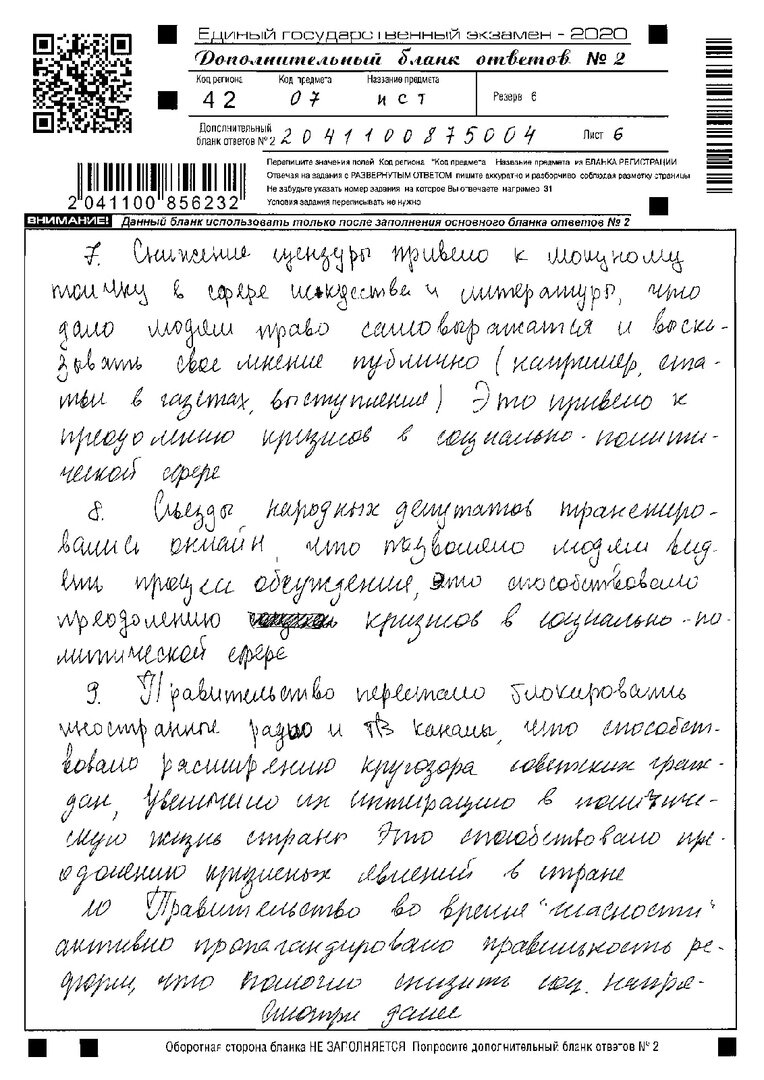 Единый государственный экзамен - 2020
Дополнительный бланк ответов № 2
Код региона Код предмета Название предмета
42 07 ист Резерв 6
Дополнительный
бланк ответов № 2 2041100875004 Лист 6
2 041100 856232
Перепишите значения полей Код региона "Код предмета Название предмета из БЛАНКА РЕГИСТРАЦИИ
Отвечая на задания с РАЗВЕРНУТЫМ ОТВЕТОМ пишите аккуратно и разборчиво соблюдая разметку страницы
Не забудьте указать номер задания на которое Вы отвечаете например 31
Условия задания переписывать не нужно
ВНИМАНИЕ! Данный бланк использовать только после заполнения основного бланка ответов № 2
7. Снижение цензуры привело к мощному
толчку в сфере искуства и литературы, что
дало людям право самовыражатся и выска-
зывать свое мнение публично (например, ста-
тьи в газетах, выступления) Это привело к
преодолению кризисов в социально-полити-
ческой сфере
8. Съезды народных депутатов транслиро-
вались онлайн, что позволяло людям вид-
еть процесс обсуждения, это способствовало
преодолению кризисов в социально-по-
литической сфере
9. Правительство перестало блокировать
иностранные радио и ТВ каналы, что способст-
вовало расширению кругозора советских граж-
дан, увеличило их интеграцию в политиче-
скую жизнь страны Это способствовало пре-
одолению кризисных явлений в стране
10 Правительство во время "гласности"
активно пропагандировало правильность ре-
форм, что помогло снизить соц. напря-
Смотри далее
Оборотная сторона бланка НЕ ЗАПОЛНЯЕТСЯ Попросите дополнительный бланк ответов № 2